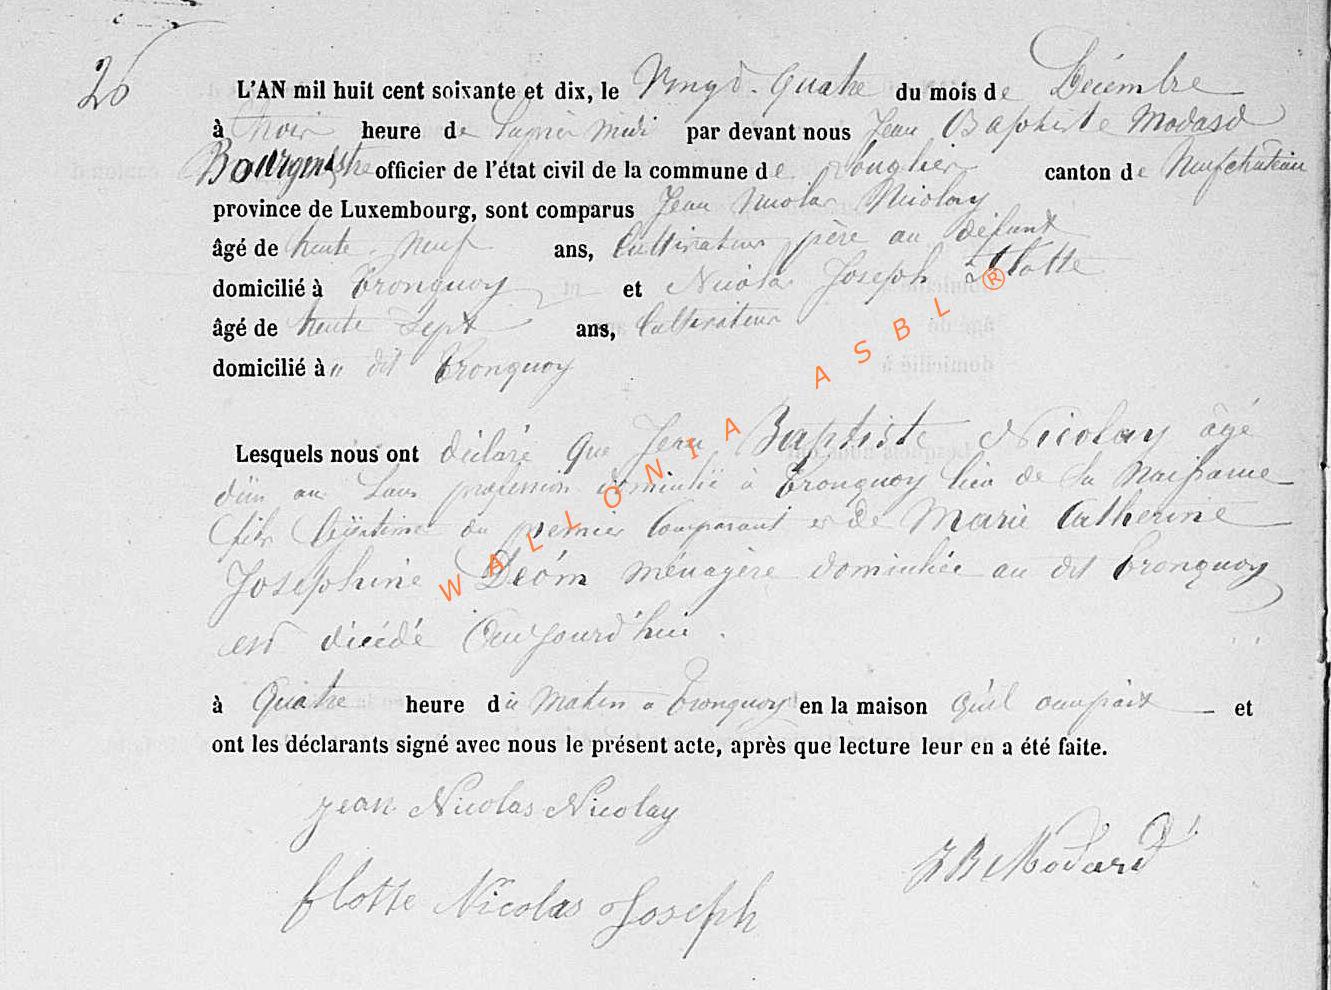 26
L'AN mil huit cent soixante et dix, le Vingt-Quatre du mois de Décembre
à trois heure de l'après midi par devant nous Jean Baptiste Modard
Bourgmestre officier de l'état civil de la commune de Longlier canton de Neufchateau
province de Luxembourg, sont comparus Jean Nicolas Nicolay
âgé de trente-neuf ans, Cultivateur père au défunt
domicilié à Tronquoy et Nicolas Joseph Flotte
âgé de trente sept ans, Cultivateur
domicilié à dit Tronquoy
Lesquels nous ont déclaré que Jean Baptiste Nicolay âgé
d'un an sans profession domicilié à Tronquoy lieu de sa naissance
fils légitime du premier Comparant et de Marie Catherine
Joséphine Déóm ménagère domiciliée au dit Tronquoy
est décédé Aujourd'hui.
à Quatre heure du matin a Tronquoy en la maison qu'il occupait et
ont les déclarants signé avec nous le présent acte, après que lecture leur en a été faite.
Jean Nicolas Nicolay
JB Modard
flotte Nicolas Joseph
WALLONIA ASBL ®